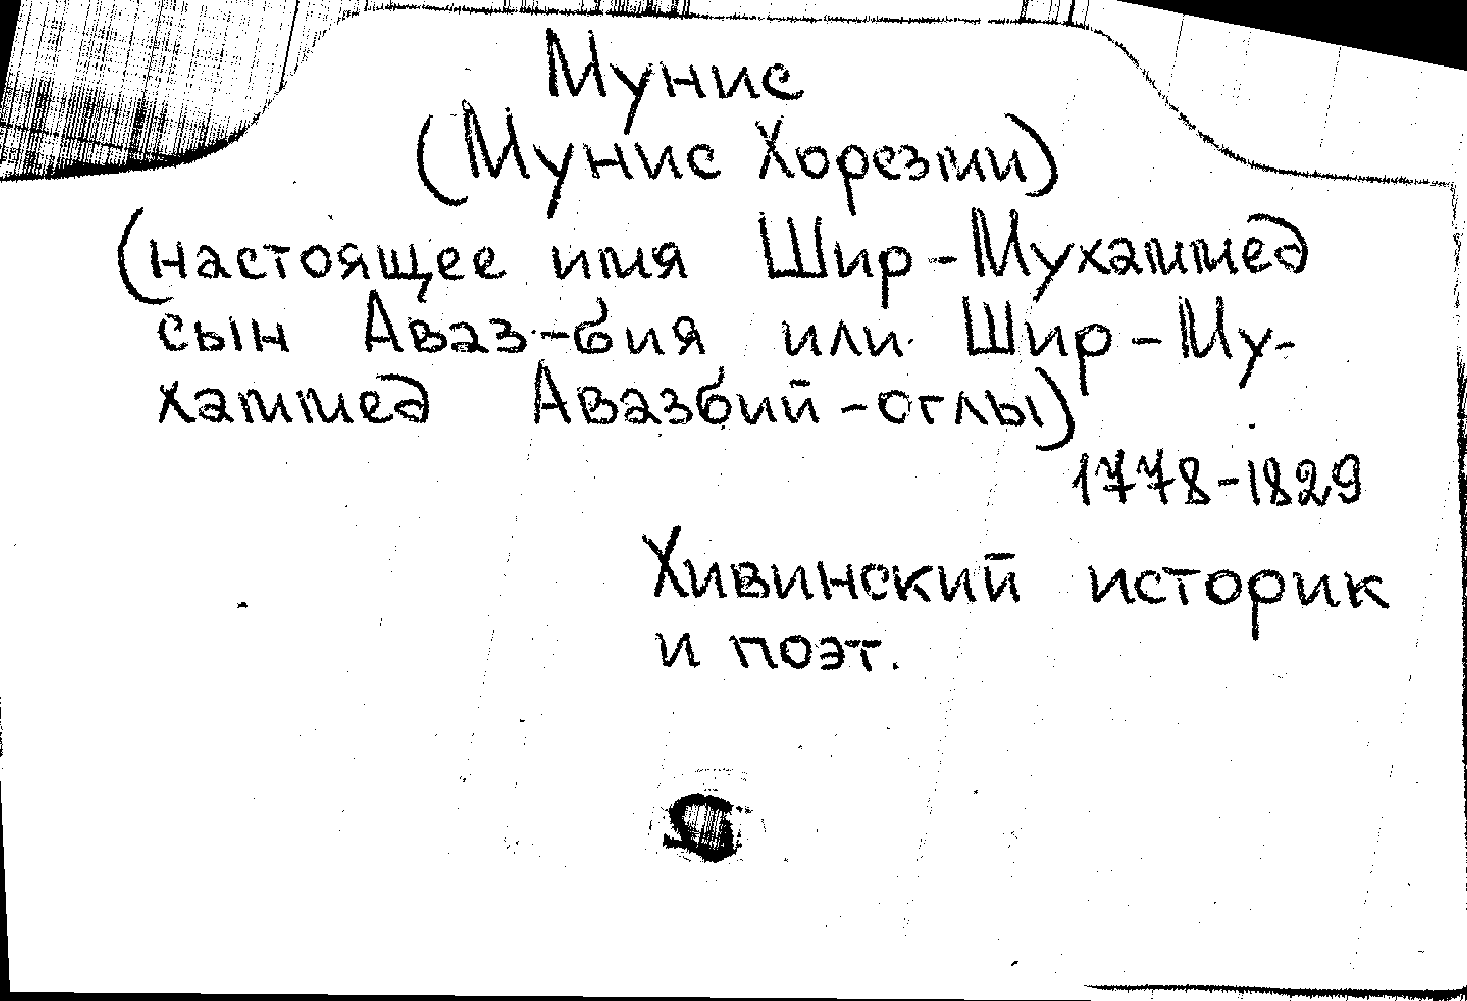 Мунис
(Мунис Хорезми)
(настоящее имя Шир-Мухаммед
сын Аваз-бия или Шир-Му-
хаммед Авазбий-оглы)
1778-1829
Хивинский историк
и поэт.